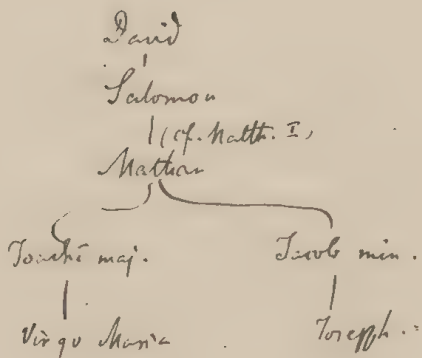 David
Salomon
(cf. Matth. I,
Mathan
Joachĩ maj. Jacob min.
Virgo Maria Joseph.